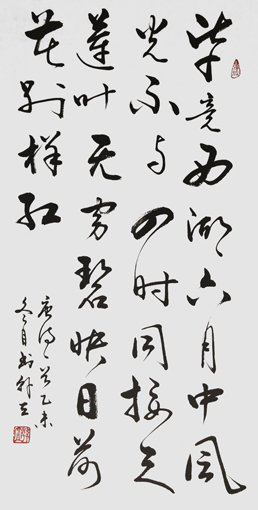 毕竟西湖六月中风
光不与四时同接天
莲叶无穷碧映日荷
花别样红
乙未
冬月书